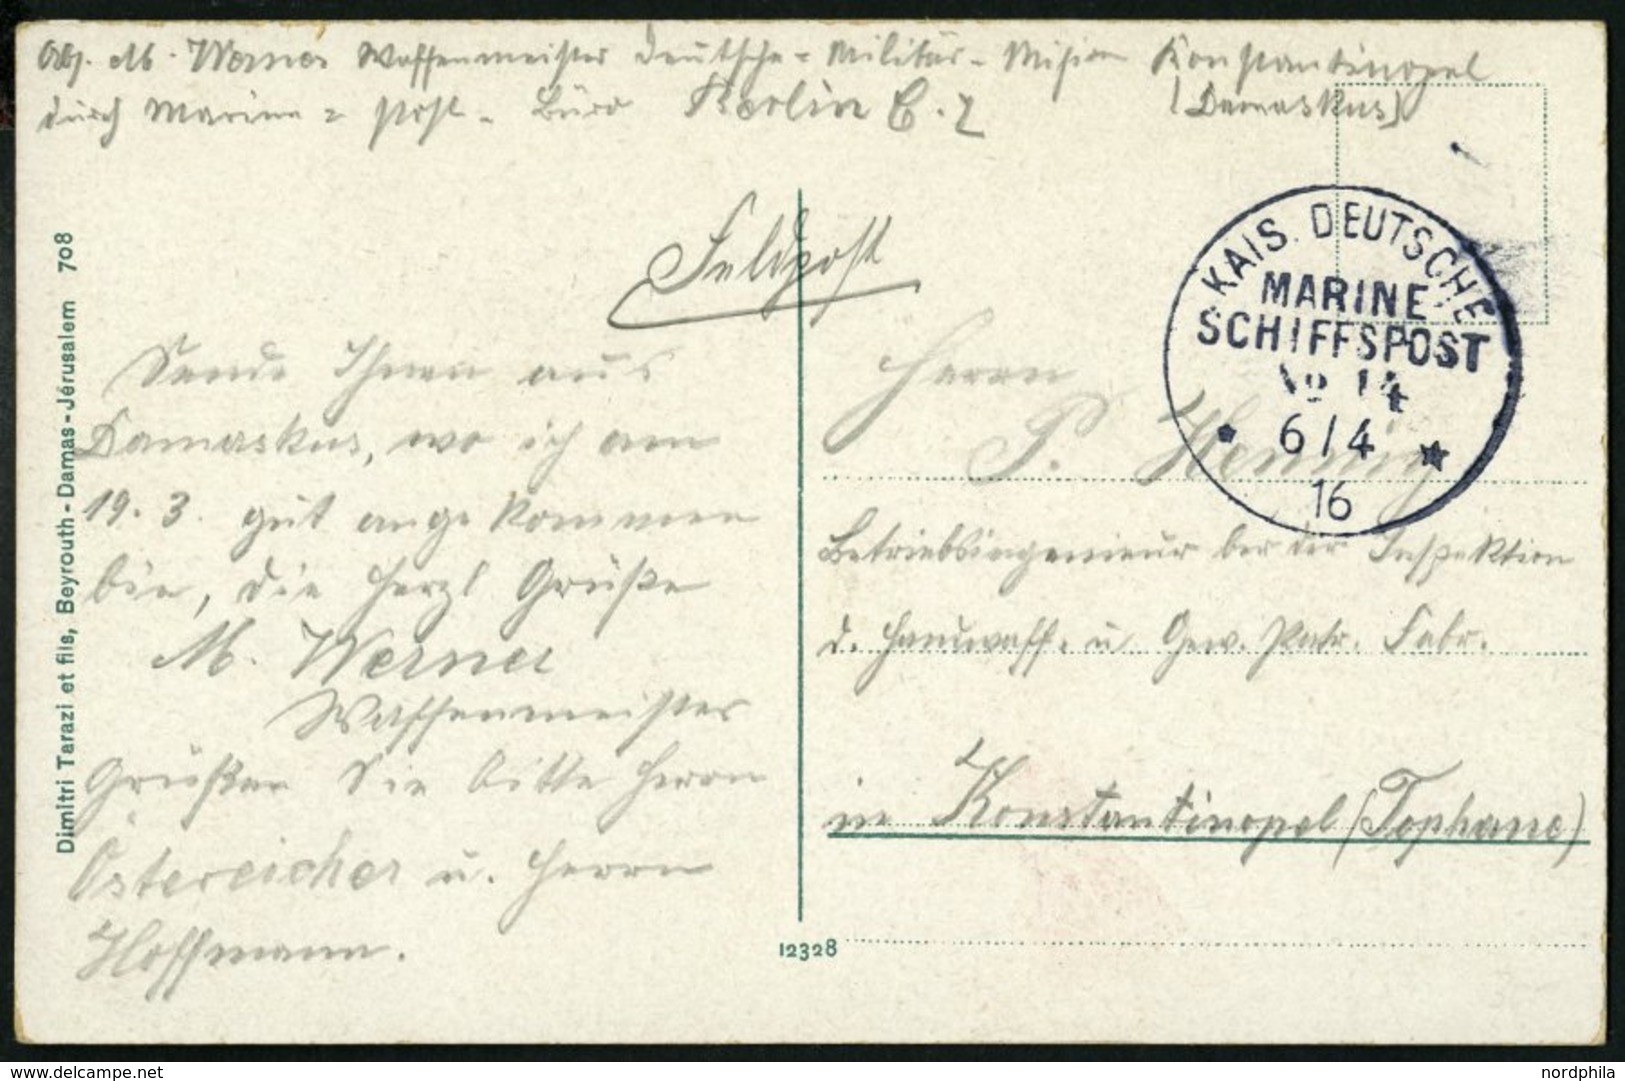 Abs. M. Werner Waffenmeister Deutsche - Militär - Mision Konstantinopel
durch Marine = Post - Büro Berlin C. 2 (Damaskus)
Feldpost
KAIS. DEUTSCHE
MARINE
SCHIFFSPOST
No 14
* 6/4 *
16
Sende Ihnen aus
Damaskus, wo ich am
19. 3. gut angekommen
bin, die herzl Grüße
M. Werner
Waffenmeister
Grüßen Sie bitte Herrn
Östereicher u. Herrn
Hoffmann.
Herrn
P. Hennig
Betriebsingenieur bei der Inspektion
d. Handwaff. u. Gew. Patr. Fabr.
in Konstantinopel (Tophane)
Dimitri Tarazi et fils, Beyrouth - Damas - Jérusalem 708
12328
delcampe.net
nordphila